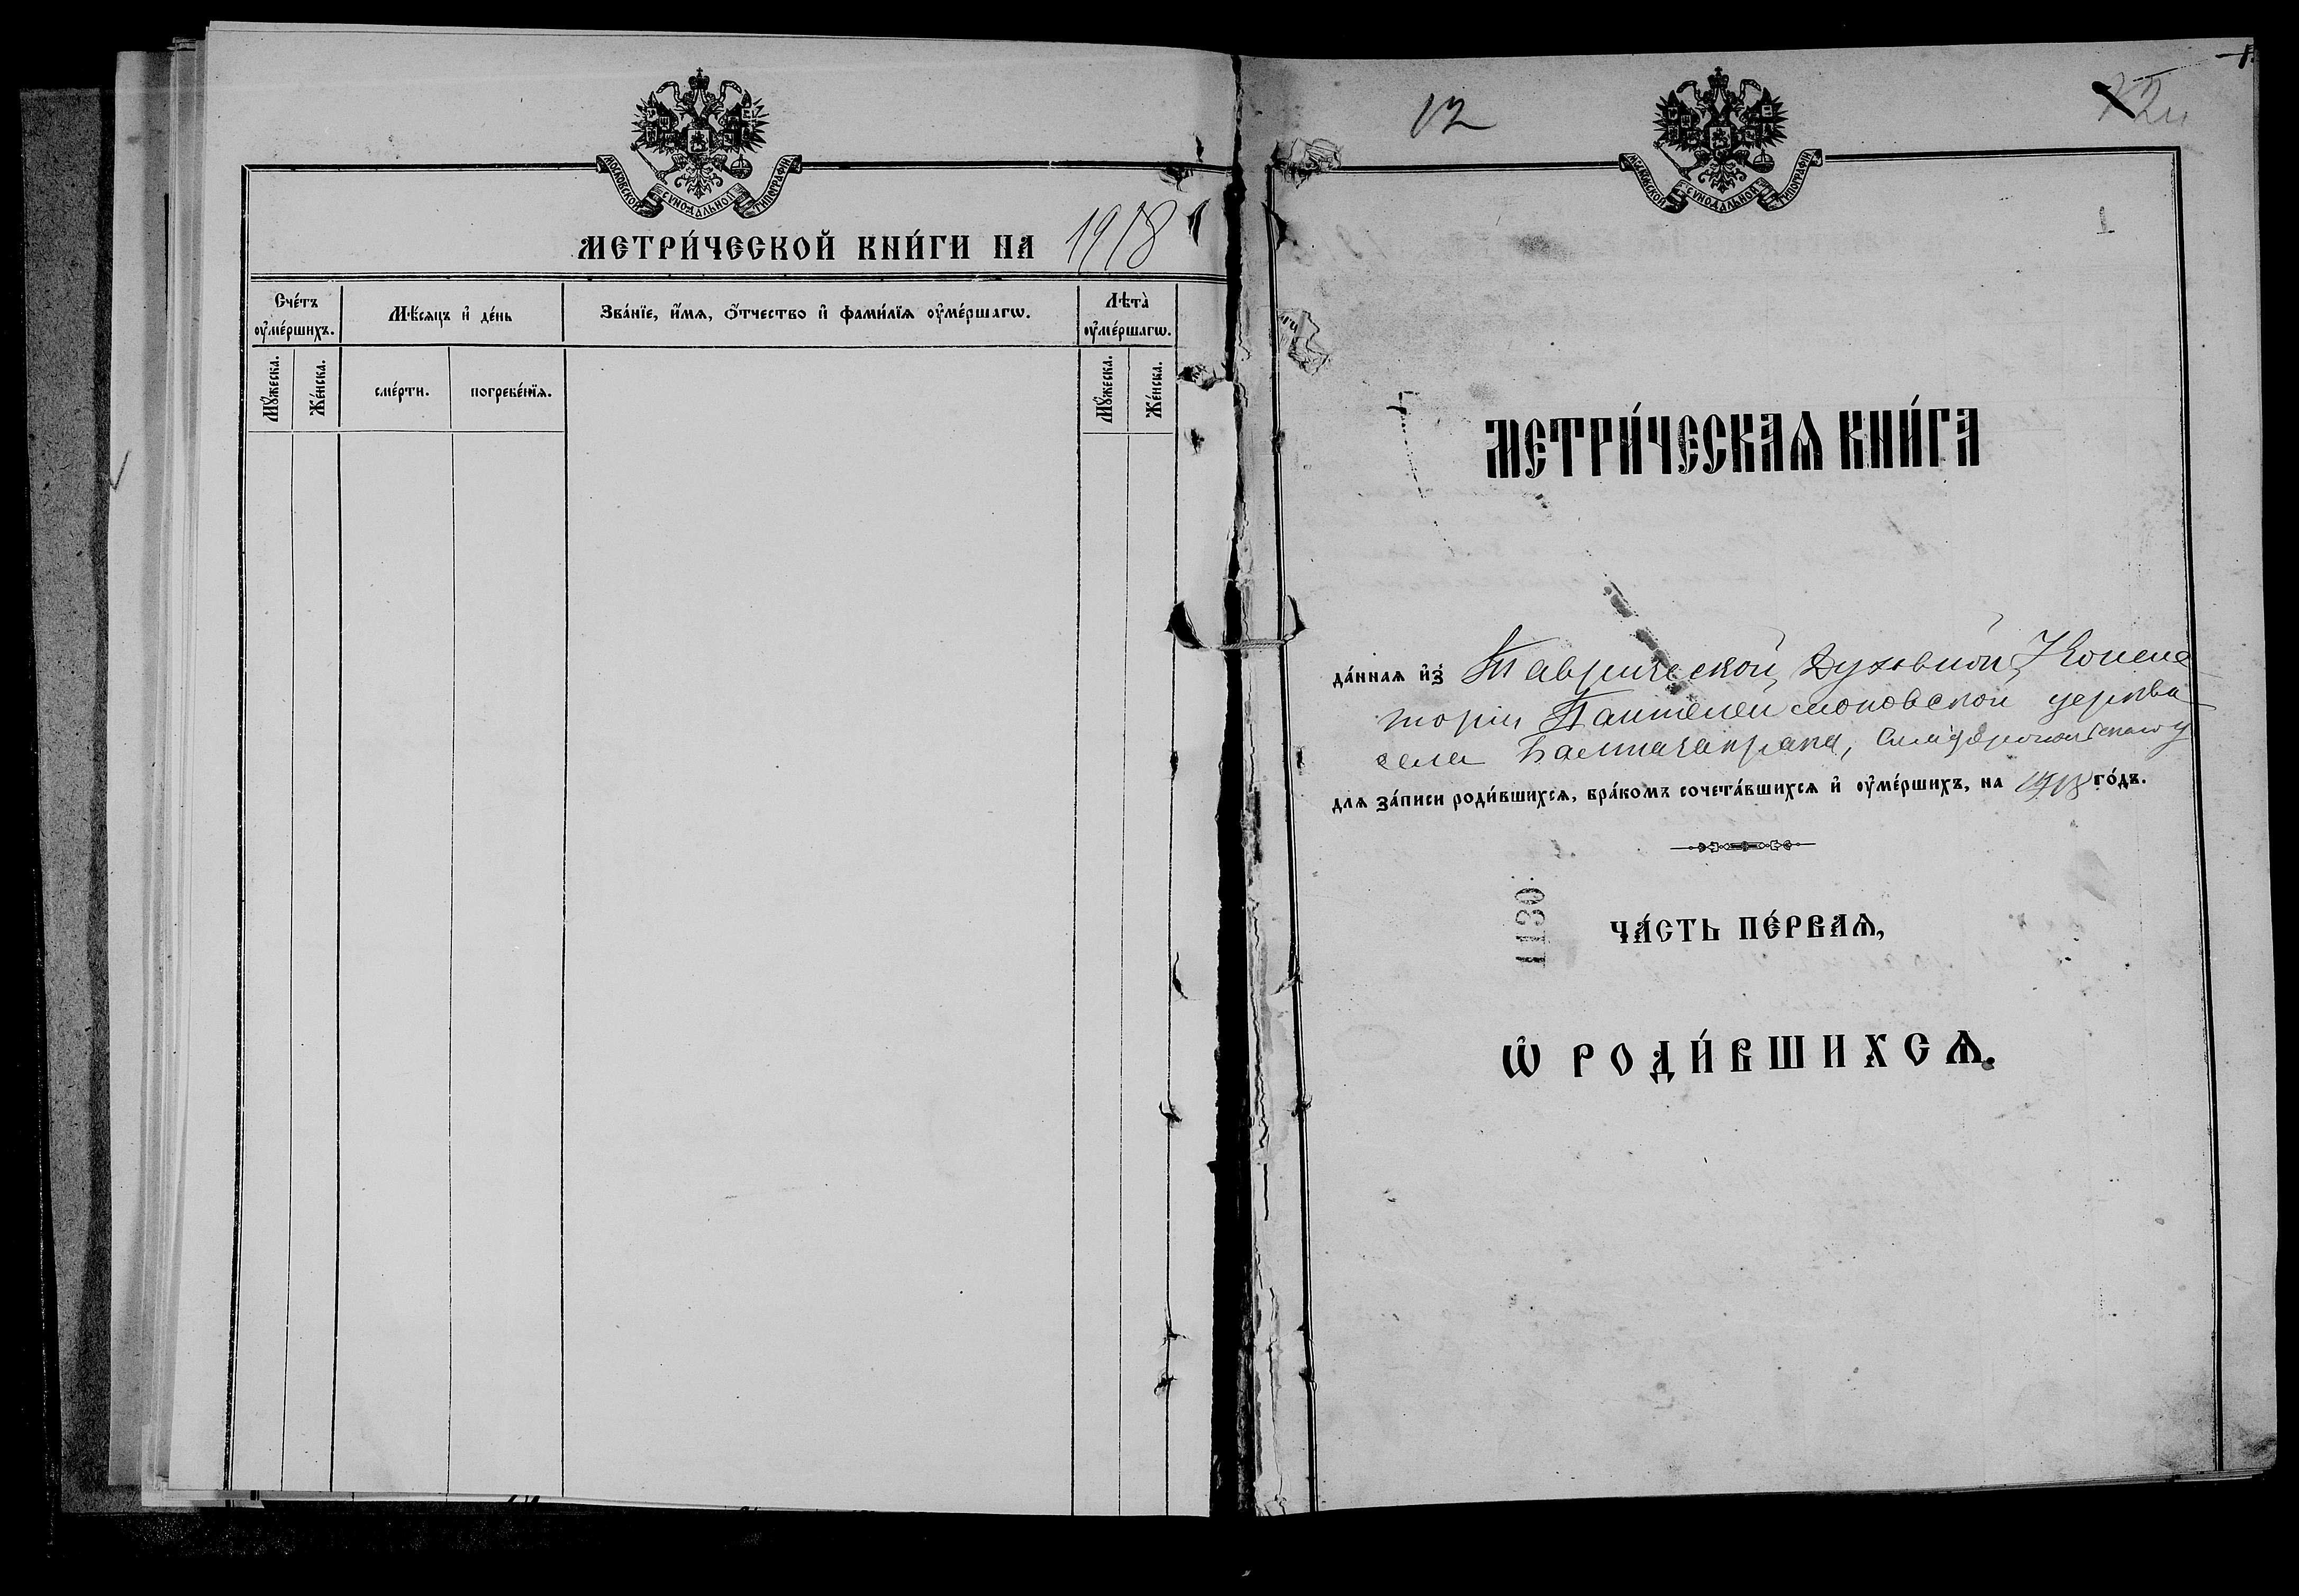 МОСКОВСКОЙ СУНОДАЛЬНОЙ ТИПОГРАФІИ
МЕТРИ́ЧЕСКОЙ КНИ́ГИ НА 1918
Сче́тъ ᲂу҆ме́ршихъ.
Мѣ́сяцъ и҆ де́нь
Зва́нїе, и҆́мѧ, ѻ҆́тчество и҆ фами́лїѧ ᲂу҆ме́ршагѡ.
Лѣта̀ ᲂу҆ме́ршагѡ.
Мꙋ́жеска.
Же́нска.
сме́рти.
погребе́нїѧ.
Мꙋ́жеска.
Же́нска.
12
МОСКОВСКОЙ СУНОДАЛЬНОЙ ТИПОГРАФІИ
1
МЕТРИ́ЧЕСКАѦ КНИ́ГА
да́ннаѧ и҆з̾ Таврической Духовной Консис
торіи Пантелеимоновской церкви
села Балтачакрака, Симферопольскаго у
длѧ за́писи роди́вшихсѧ, бра́комъ сочета́вшихсѧ и҆ ᲂу҆ме́ршихъ, на 1918 го́дъ.
1130
ЧА́СТЬ ПЕ́РВАѦ,
Ѡ҆ РОДИ́ВШИХСѦ.